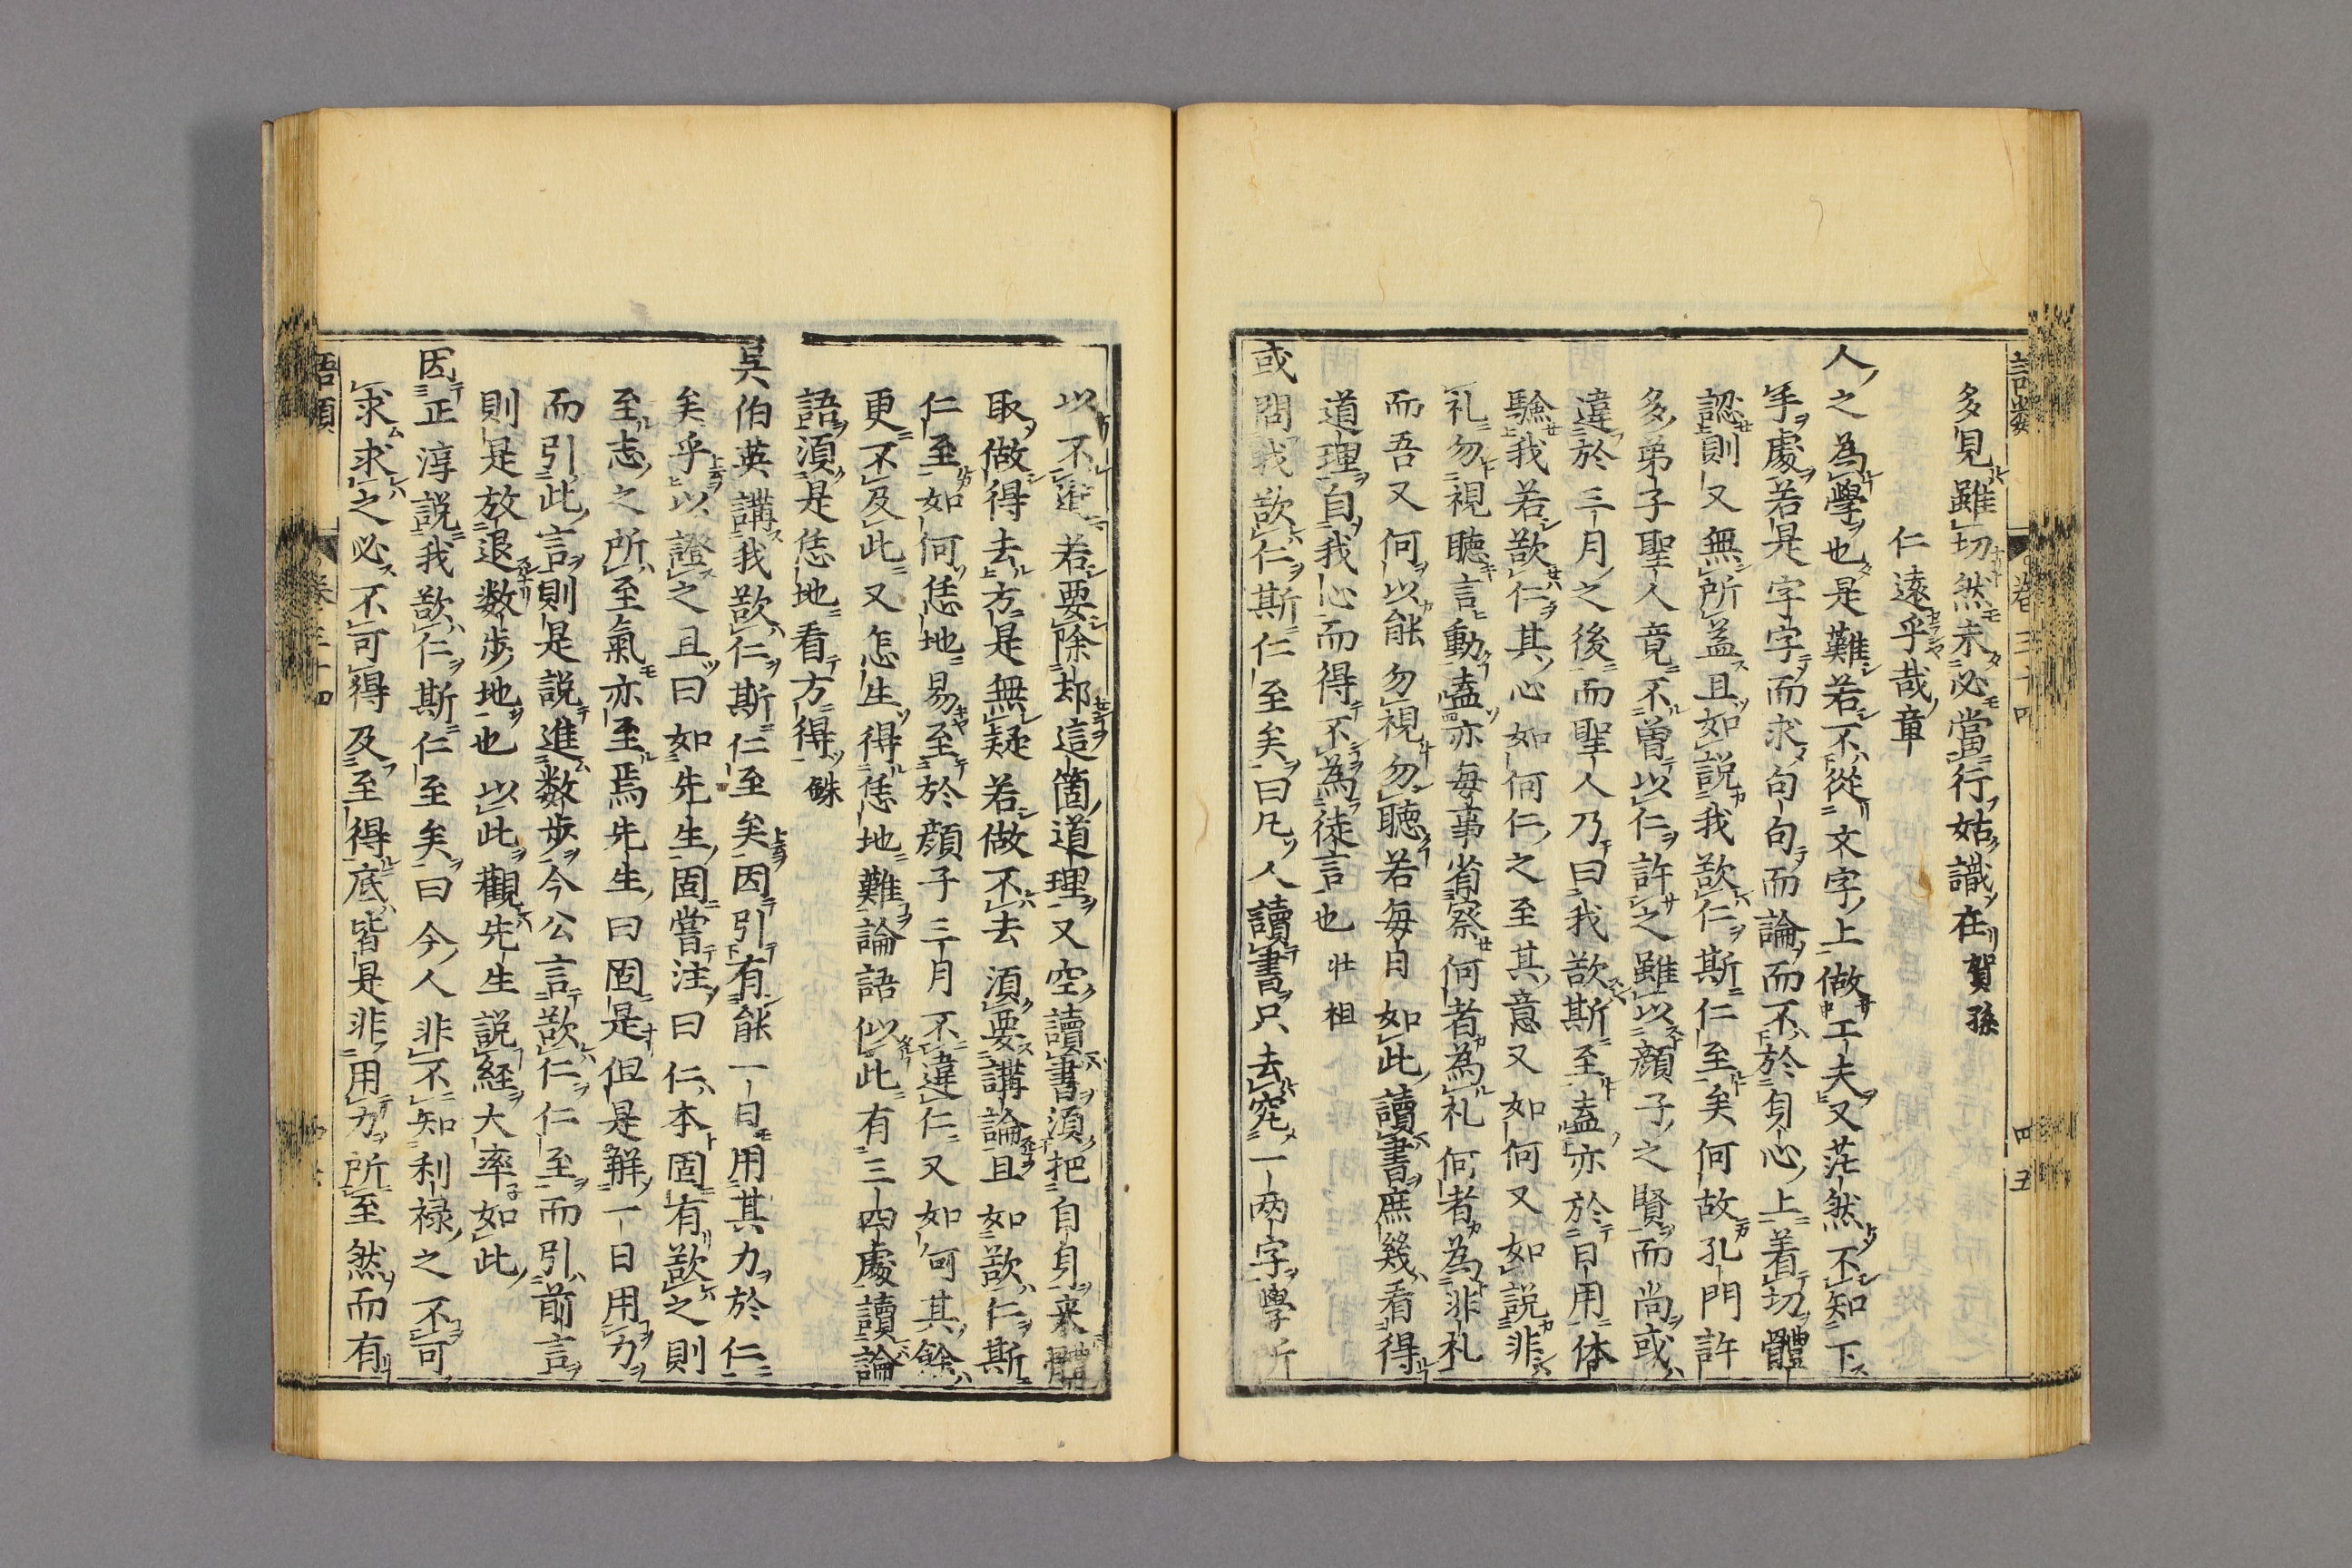 多見雖切然未必當行姑識在賀孫
仁遠乎哉章
人之為學也是難若不從文字上做工夫又茫然不知下
手處若是字字而求句句而論而不於身心上着切體
認則又無所益且如説我欲仁斯仁至矣何故孔門許
多弟子聖人竟不曽以仁許之雖以顔子之賢而尚或
違於三月之後而聖人乃曰我欲斯至盍亦於日用体
驗我若欲仁其心如何仁之至其意又如何又如説非
礼勿視聽言動盍亦毎事省察何者為礼何者為非礼
而吾又何以能勿視勿聽若毎日如此讀書庶幾看得
道理自我心而得不為徒言也壯祖
或問我欲仁斯仁至矣曰凡人讀書只去究一两字學所
以不進若要除却這箇道理又空讀書須把自身来體
取做得去方是無疑若做不去須要講論且如欲仁斯
仁至如何恁地易至於顔子三月不違仁又如何其餘
更不及此又怎生得恁地難論語似此有三四處讀論
語須是恁地看方得銖
吴伯英講我欲仁斯仁至矣因引有能一日用其力於仁
矣乎以證之且曰如先生固嘗注曰仁本固有欲之則
至志之所至氣亦至焉先生曰固是但是觧一日用力
而引此言則是説進数歩今公言欲仁仁至而引前言
則是放退数歩地也以此觀先生説経大率如此
因正淳説我欲仁斯仁至矣曰今人非不知利禄之不可
求求之必不可得及至得底皆是非用力所至然而有
語類
卷三十四